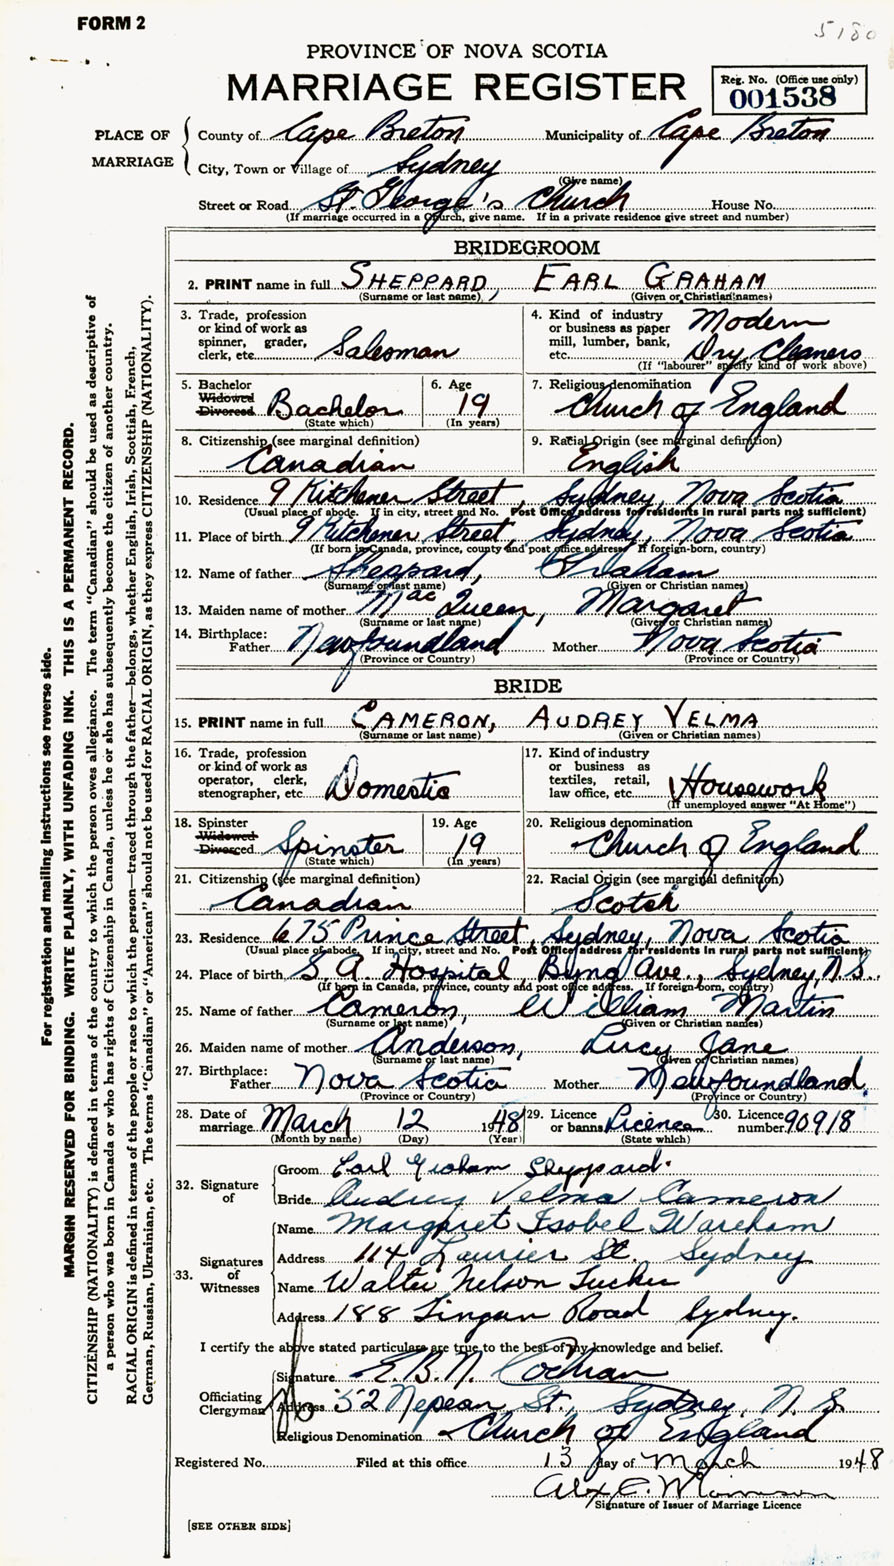 FORM 2
5180
PROVINCE OF NOVA SCOTIA
MARRIAGE REGISTER
Reg. No. (Office use only)
001538
PLACE OF MARRIAGE
County of Cape Breton Municipality of Cape Breton
City, Town or Village of Sydney
(Give name)
Street or Road St. George's Church House No.
(If marriage occurred in a Church, give name. If in a private residence give street and number)
BRIDEGROOM
2. PRINT name in full SHEPPARD, EARL GRAHAM
(Surname or last name) (Given or Christian names)
3. Trade, profession or kind of work as spinner, grader, clerk, etc. Salesman
4. Kind of industry or business as paper mill, lumber, bank, etc. Modern Dry Cleaners
(If "labourer" specify kind of work above)
5. Bachelor Widowed Divorced Bachelor
(State which)
6. Age 19
(In years)
7. Religious denomination
Church of England
8. Citizenship (see marginal definition)
Canadian
9. Racial Origin (see marginal definition)
English
10. Residence 9 Kitchener Street, Sydney, Nova Scotia
(Usual place of abode. If in city, street and No. Post Office address for residents in rural parts not sufficient)
11. Place of birth 9 Kitchener Street, Sydney, Nova Scotia
(If born in Canada, province, county and post office address. If foreign-born, country)
12. Name of father Sheppard, Graham
(Surname or last name) (Given or Christian names)
13. Maiden name of mother MacQueen, Margaret
(Surname or last name) (Given or Christian names)
14. Birthplace:
Father Newfoundland Mother Nova Scotia
(Province or Country) (Province or Country)
BRIDE
15. PRINT name in full CAMERON, AUDREY VELMA
(Surname or last name) (Given or Christian names)
16. Trade, profession or kind of work as operator, clerk, stenographer, etc. Domestic
17. Kind of industry or business as textiles, retail, law office, etc. Housework
(If unemployed answer "At Home")
18. Spinster Widowed Divorced Spinster
(State which)
19. Age 19
(In years)
20. Religious denomination
Church of England
21. Citizenship (see marginal definition)
Canadian
22. Racial Origin (see marginal definition)
Scotch
23. Residence 675 Prince Street, Sydney, Nova Scotia
(Usual place of abode. If in city, street and No. Post Office address for residents in rural parts not sufficient)
24. Place of birth S. A. Hospital, Byng Ave., Sydney, N.S.
(If born in Canada, province, county and post office address. If foreign-born, country)
25. Name of father Cameron, William Martin
(Surname or last name) (Given or Christian names)
26. Maiden name of mother Anderson, Lucy Jane
(Surname or last name) (Given or Christian names)
27. Birthplace:
Father Nova Scotia Mother Newfoundland
(Province or Country) (Province or Country)
28. Date of marriage March 12 1948
(Month by name) (Day) (Year)
29. Licence or banns Licence
(State which)
30. Licence number 90918
32. Signature of
Groom Earl Graham Sheppard.
Bride Audrey Velma Cameron
33. Signatures of Witnesses
Name Margaret Isobel Wareham
Address 114 Laurier St. Sydney
Name Walter Nelson Tucker
Address 188 Lingan Road Sydney.
I certify the above stated particulars are true to the best of my knowledge and belief.
Officiating Clergyman
Signature E.B.N. Cochran
Address 52 Nepean St., Sydney, N.S.
Religious Denomination Church of England
Registered No. Filed at this office 13 day of March 1948
Signature of Issuer of Marriage Licence
[SEE OTHER SIDE]
For registration and mailing instructions see reverse side.
MARGIN RESERVED FOR BINDING. WRITE PLAINLY, WITH UNFADING INK. THIS IS A PERMANENT RECORD.
CITIZENSHIP (NATIONALITY) is defined in terms of the country to which the person owes allegiance. The term "Canadian" should be used as descriptive of
a person who was born in Canada or who has rights of Citizenship in Canada, unless he or she has subsequently become the citizen of another country.
RACIAL ORIGIN is defined in terms of the people or race to which the person—traced through the father—belongs, whether English, Irish, Scottish, French,
German, Russian, Ukrainian, etc. The terms "Canadian" or "American" should not be used for RACIAL ORIGIN, as they express CITIZENSHIP (NATIONALITY).